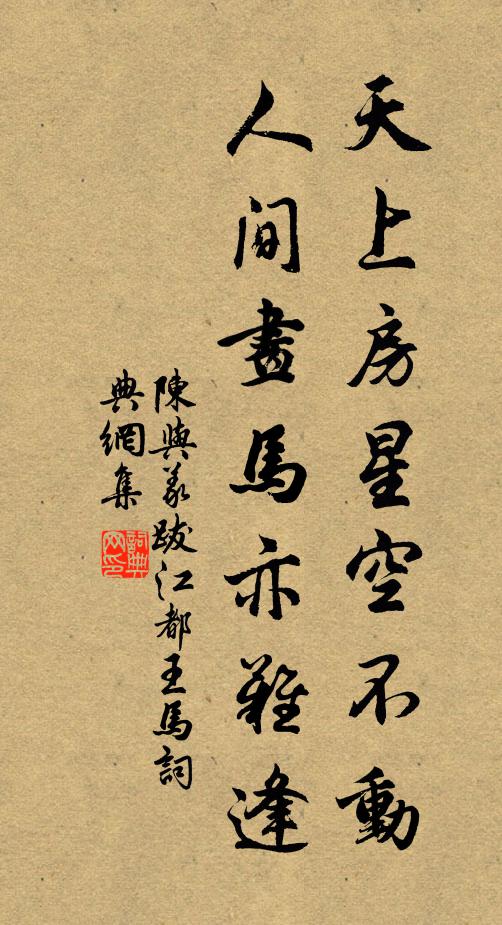 天上房星空不動
人間畫馬亦難逢
陳與義跋江都王馬詞
典網集
詞典網印